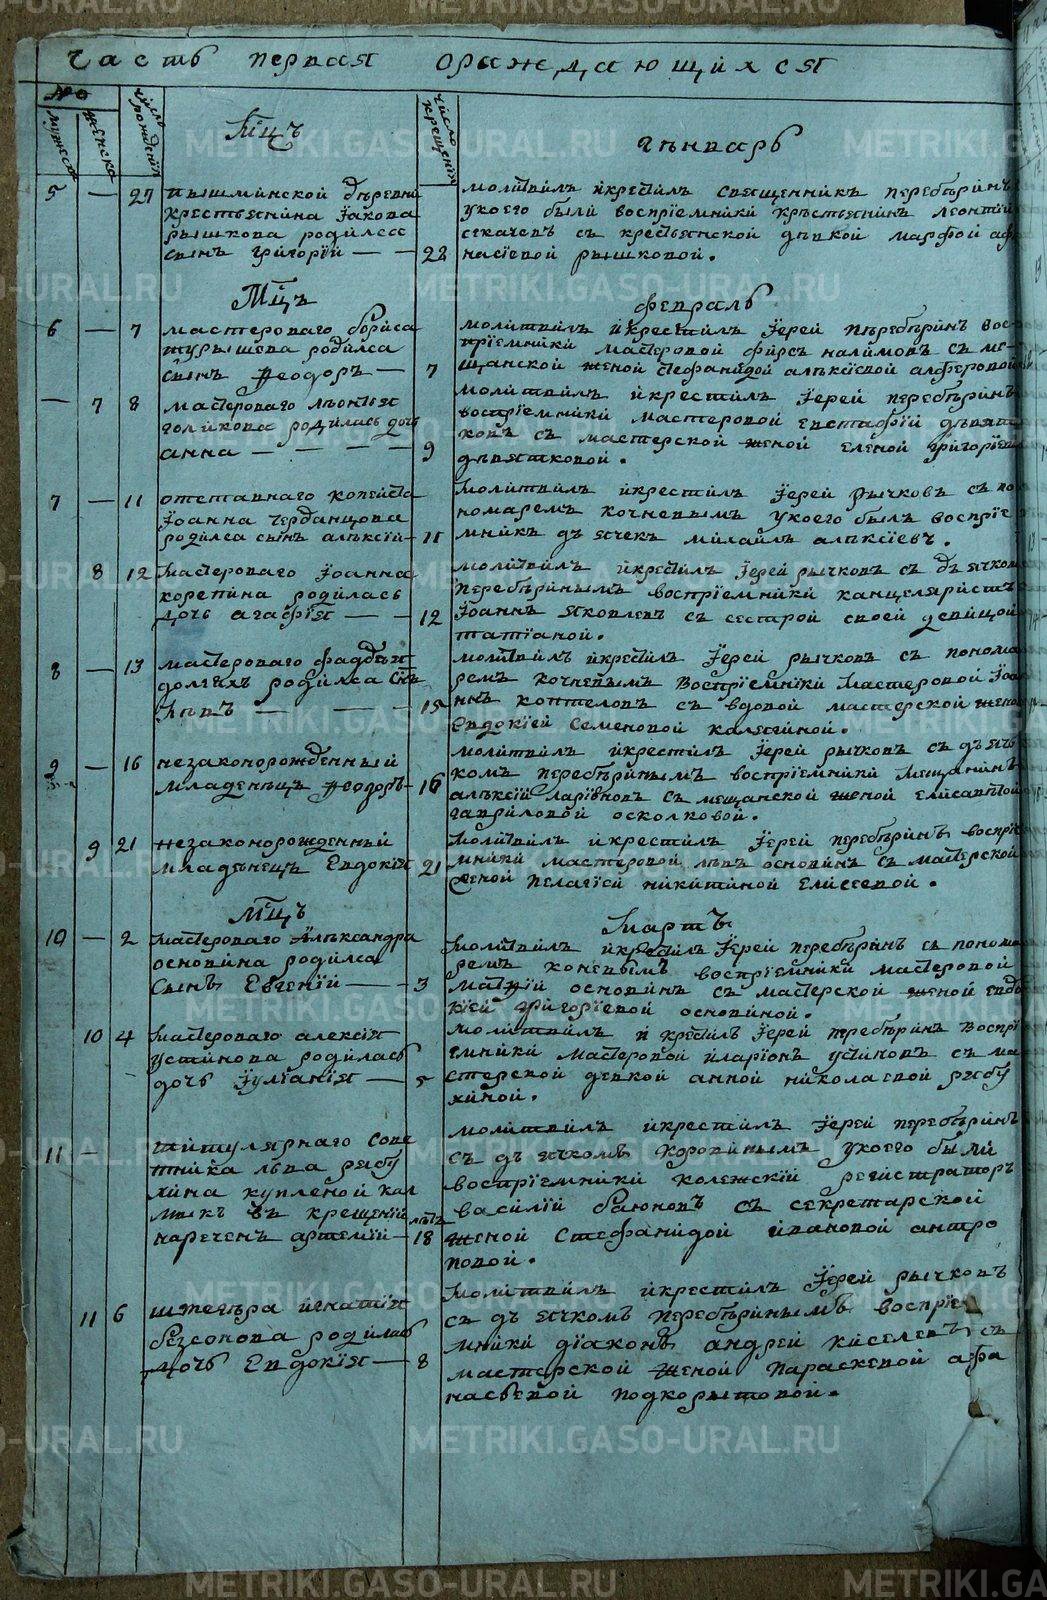 часть первая ораждающихся
№
мужеска
женска
число рождения
Мцъ
число крещения
Генварь
5 — 27 пышминской деревни
крестьянина Iакова
рышкова родилса
сынъ григорiй — — 28
молитвилъ икрестилъ священникъ перебѣринъ
укоего были воспрiемники крѣстьянинъ леонтiй
секачевъ съ крестьянской дѣвкой марфой афо
насiевой рышковой.
Мцъ
февраль
6 — 7 мастероваго бориса
турышева родилса
сынъ Ѳеодоръ — 7
молитвилъ икрестилъ Iерей перебѣринъ вос
прiемники мастеровой фирсъ налимовъ съ ме
щанской женой стефанидой алѣксiевой алферовой
— 7 8 мастероваго лѣонтья
голикова родилась дочь
анна — — — — 9
молитвилъ икрестилъ Iерей перебѣринъ
воспрiемники мастеровой евстафiй дѣвят
ковъ съ мастерской женой еленой григорiевой
дѣвятковой.
7 — 11 отставнаго копеиста
Iоанна черданцова
родилса сынъ алѣксiй — 11
молитвилъ икрестилъ Iерей рычковъ съ по
номаремъ кочневымъ укоего былъ воспрiе
мникъ дьячекъ михаилъ алѣксiевъ.
8 12 мастероваго Iоанна
корепина родилась
дочь агафiя — — 12
молитвилъ икрестилъ Iерей рычковъ съ дьячком
перебѣринымъ воспрiемники канцеляристъ
Iоаннъ яковлевъ съ сестрой своей девицой
татiаной.
8 — 13 мастероваго фаддѣя
долгихъ родилса снъ
лѣвъ — — — 15
молитвилъ икрестилъ Iерей рычковъ съ понома
ремъ кочневымъ воспрiемники мастеровой Iоа
ннъ коптеловъ съ вдовой мастерской женой
Евдокiей семеновой калегиной.
9 — 16 незаконорожденный
младенѣцъ Ѳеодоръ — 16
молитвилъ икрестилъ Iерей рычковъ съ дьяч
комъ перебѣринымъ воспрiемники мещанинъ
алѣксiй ларiвновъ съ мещанской женой елисавѣтой
гавриловой осколковой.
9 21 незаконорожденный
младѣнецъ Евдокiя 21
молитвилъ икрестилъ Iерей перебѣринъ воспрiе
мники мастеровой лѣвъ основинъ съ мастерской
женой пелагiей никитиной елисеевой.
Мцъ
Мартъ
10 — 2 мастероваго Алѣксандра
основина родилса
сынъ Евгенiй — — 3
молитвилъ икрестилъ Iерей перебѣринъ съ понома
ремъ коневымъ воспрiемники мастеровой
матѳiй основинъ съ мастерской женой евдо
кiей григорiевой основиной.
10 4 мастероваго алексiя
устинова родилась
дочь Iулiанiя — 5
молитвилъ и крестилъ Iерей перебѣринъ воспрi
емники мастеровой иларiонъ устиновъ съ ма
стерской дѣвкой анной николаевой рябу
хиной.
11 — титулярнаго сове
тника льва рябу
хина купленой кал
мыкъ въ крещенiй
наречен артемiй — лѣтъ 18
молитвилъ икрестилъ Iерей перебѣринъ
съ дьячкомъ коровинымъ укоего были
воспрiемники колежскiй регистраторъ
василiй баюновъ съ секретарской
женой стефанидой ивановой антро
повой.
11 6 штегера игнатiя
безсонова родилась
дочь Евдокiя — 8
молитвилъ икрестилъ Iерей рычковъ
съ дьячкомъ перебѣринымъ воспрiе
мники дiаконъ андрей киселевъ съ
мастерской женой параскевой афа
насьевой подкорытовой.
METRIKI.GASO-URAL.RU